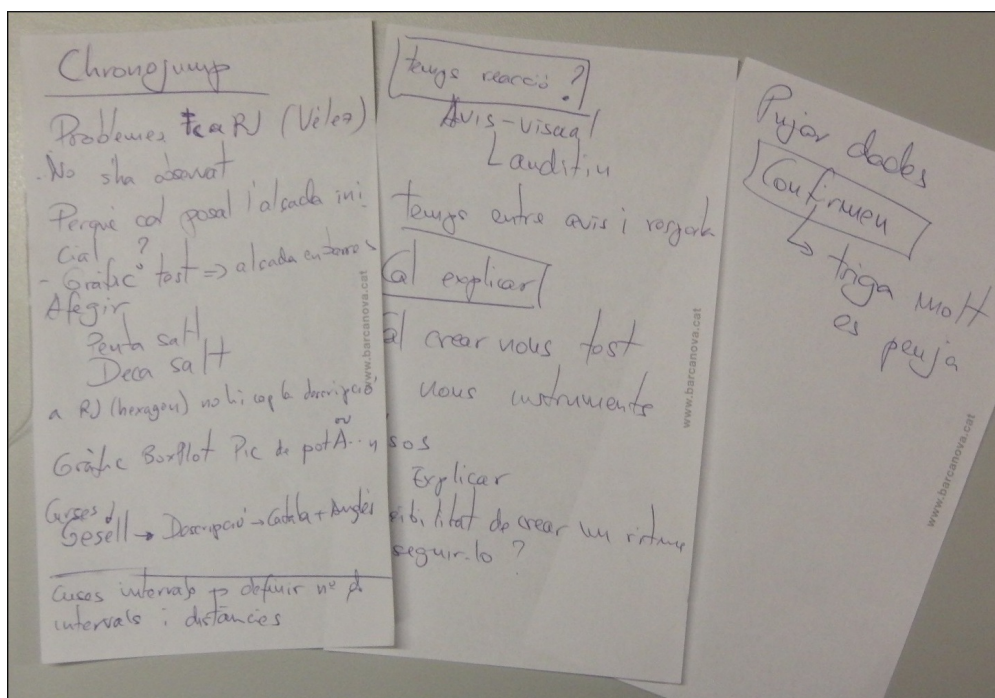 Chronojump
Problemes a RJ (Vélez)
. No s'ha observat
Perquè cal posal l'alçada ini
cial ?
- Gràfic tost => alçada
Afegir
Penta salt
Deca salt
a RJ (hexagon) no hi cap la descripció
Gràfic Boxplot Pic de pot
Curses
Gesell → Descripció → Català + Anglès
Curses intervals → definir nº de
intervals i distàncies
www.barcanova.cat
temps reacció ?
Avis - visual
auditiu
temps entre avis i resposta
Cal explicar
al crear nous tost
nous instruments
sos
Explicar
sibilitat de crear un ritme
seguir-lo ?
www.barcanova.cat
Pujar dades
Confirmeu
↳ triga molt
es penja
www.barcanova.cat